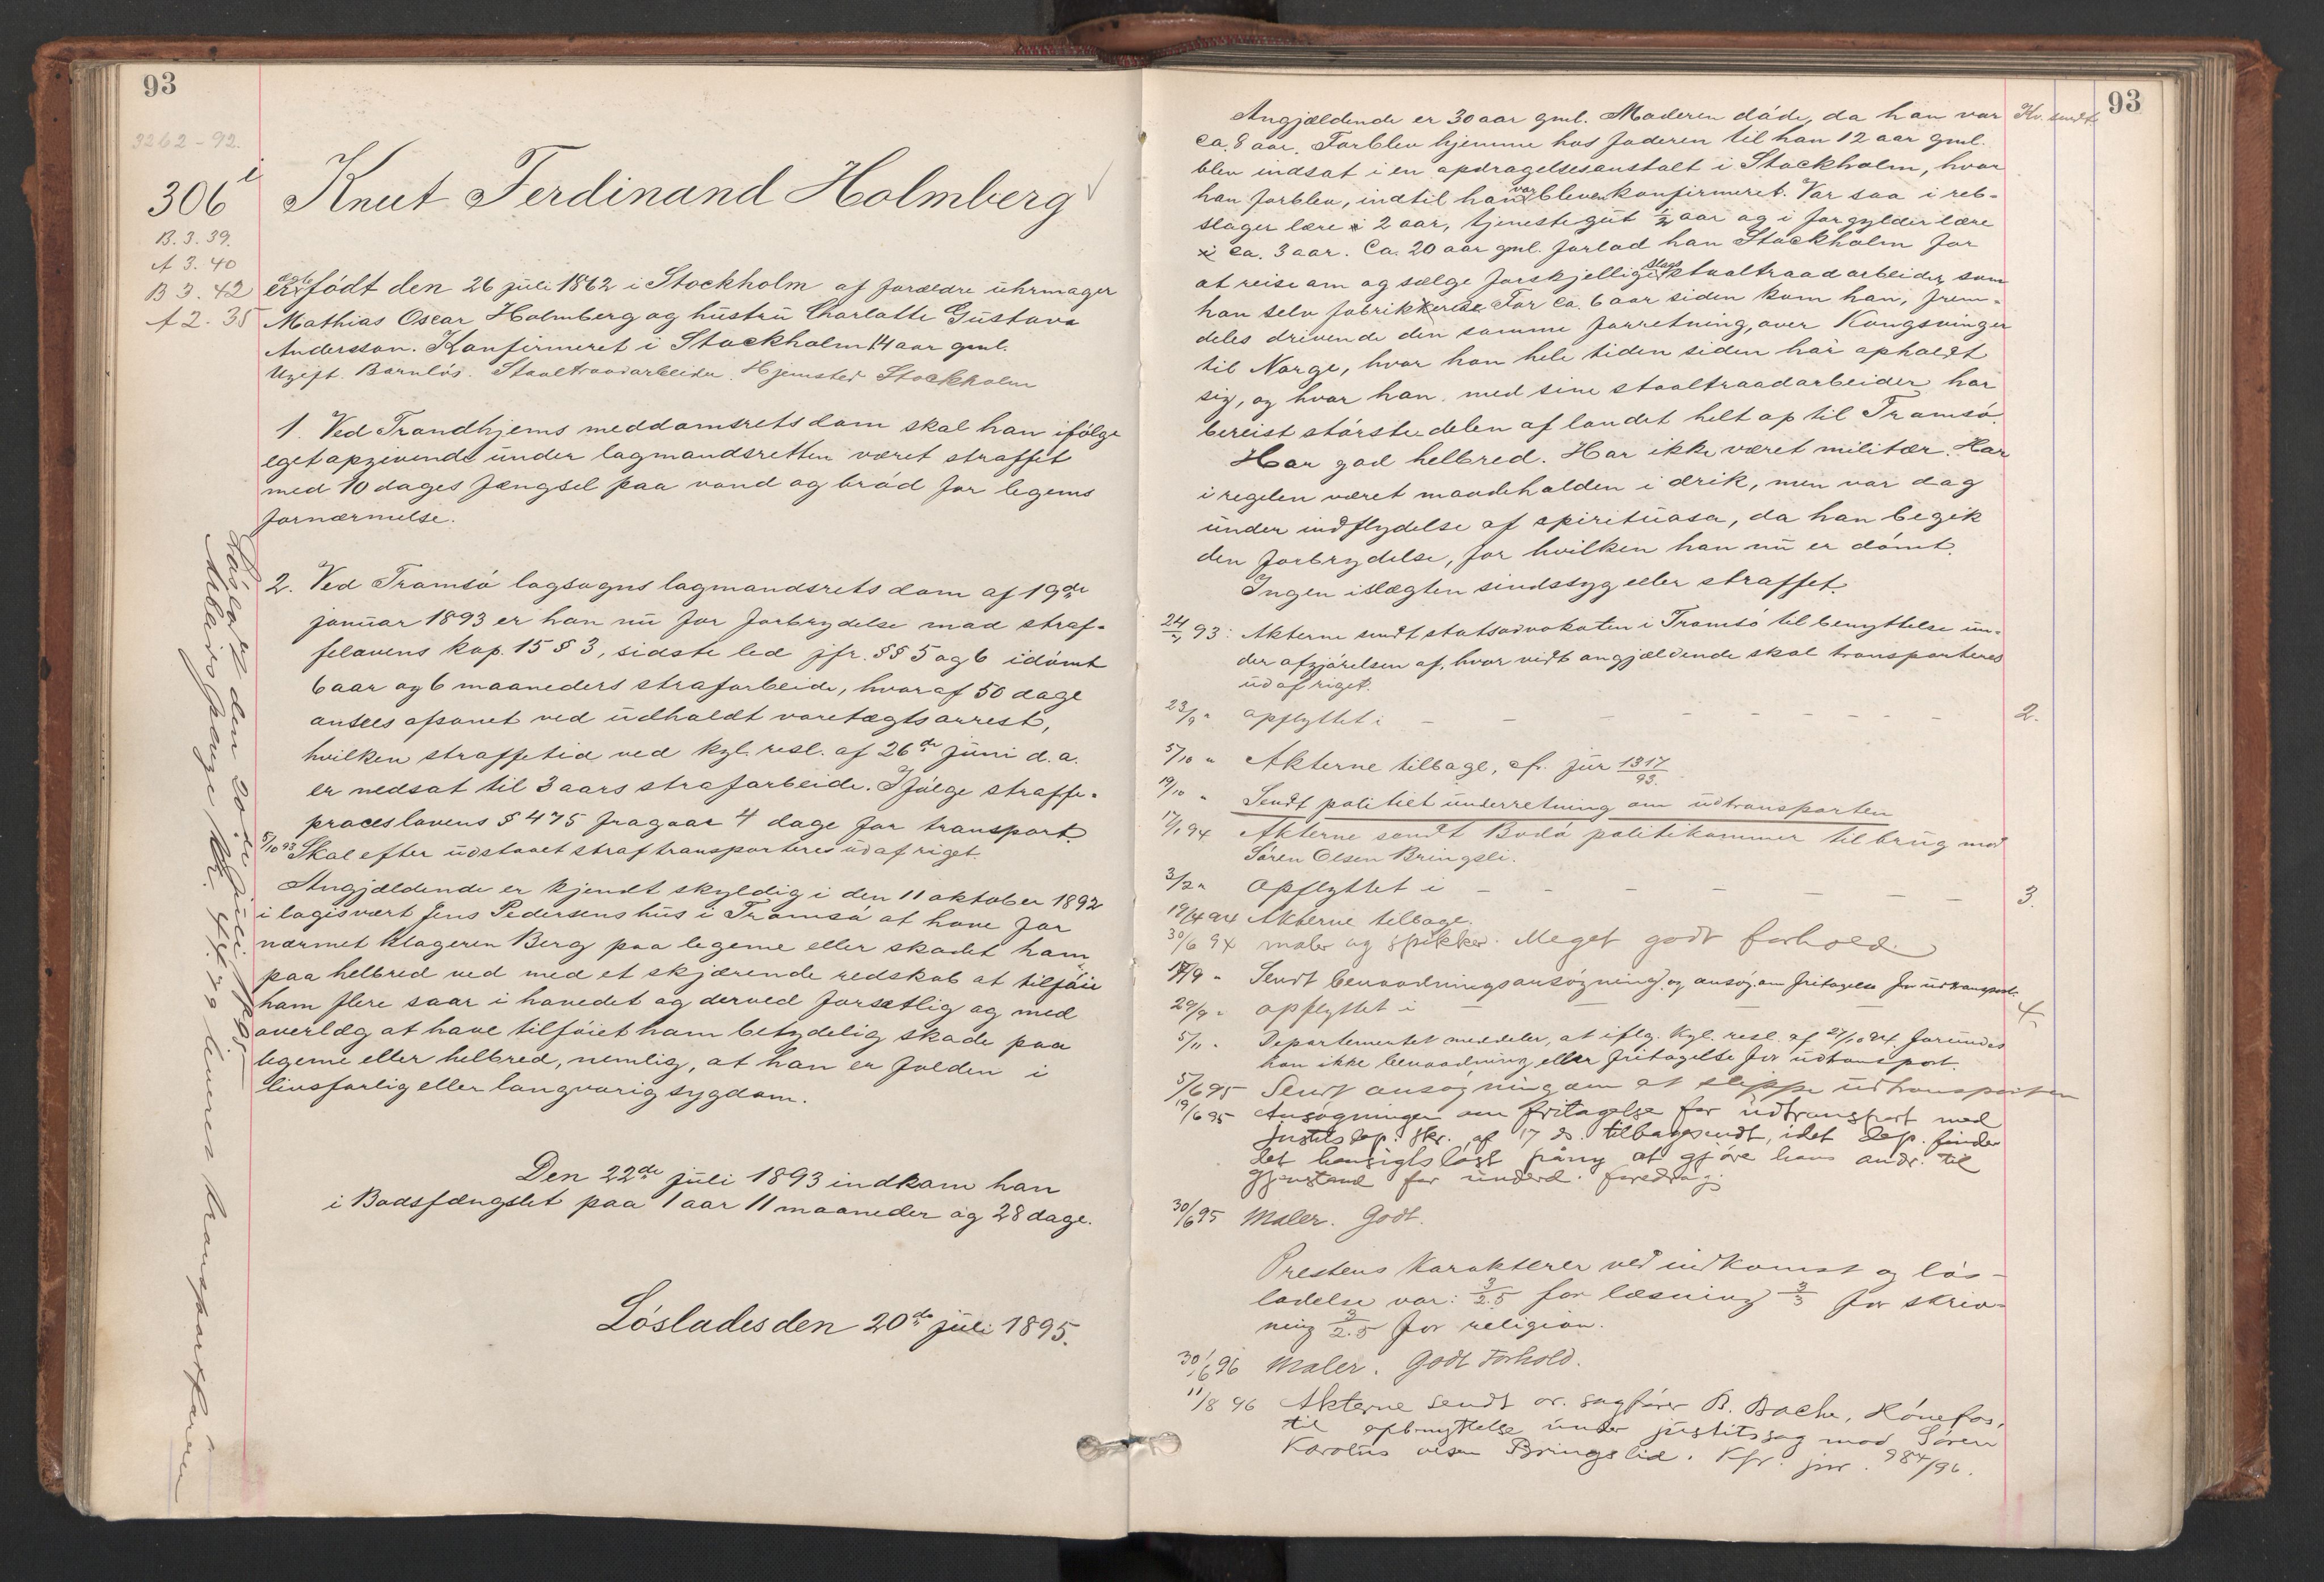 93
3262-92.
306 i
B. 3. 39.
A 3. 40
B 3. 42
A 2. 35
Knut Ferdinand Holmberg
er født den 26 juli 1862 i Stockholm af forældre uhrmager
Mathias Oscar Holmberg og hustru Charlotte Gustava
Andersson. Konfirmeret i Stockholm 14 aar gml.
Ugift. Barnløs. Staaltraadarbeider. Hjemsted Stockholm
1. Ved Trondhjems meddomsrets dom skal han ifølge
eget opgivende under lagmandsretten været straffet
med 10 dages fængsel paa vand og brød for legems
fornærmelse.
2. Ved Tromsø lagsogns lagmandsrets dom af 19de
januar 1893 er han nu for forbrydelse mod straf-
felovens kap. 15 § 3, sidste led jfr. §§ 5 og 6 idømt
6 aar og 6 maaneders strafarbeide, hvoraf 50 dage
ansees afsonet ved udholdt varetægtsarrest,
hvilken straffetid ved kgl. resl. af 26de juni d. a.
er nedsat til 3 aars strafarbeide. Ifølge straffe-
proceslovens § 475 fragaar 4 dage for transport.
5/10 93 Skal efter udstaaet straf transporteres ud af riget.
Angjældende er kjendt skyldig i den 11 oktober 1892
i logisvært Jens Pedersens hus i Tromsø at have for
nærmet klageren Berg paa legeme eller skadet ham
paa helbred ved med et skjærende redskab at tilføie
ham flere saar i hovedet og derved forsætlig og med
overlæg at have tilføiet ham betydelig skade paa
legeme eller helbred, nemlig, at han er falden i
livsfarlig eller langvarig sygdom.
Den 22de juli 1893 indkom han
i Bodsfængslet paa 1 aar 11 maaneder og 28 dage.
Løslades den 20de juli 1895.
Løsladt den 20de juli 1895
Arbeidspenge kr. 48.79 leveres transportføreren
93
Kv. sendt
Angjældende er 30 aar gml. Moderen døde, da han var
ca. 8 aar. Forblev hjemme hos faderen til han 12 aar gml.
blev indsat i en opdragelsesanstalt i Stockholm, hvor
han forblev, indtil han var bleven konfirmeret. Var saa i reb-
slager lære i 2 aar, tjenestegut ½ aar og i forgylder lære
i ca. 3 aar. Ca. 20 aar gml. forlod han Stockholm for
at reise om og sælge forskjellige slags staaltraadarbeider, som
han selv fabrikkerede. For ca. 6 aar siden kom han, frem-
deles drivende den samme forretning, over Kongsvinger
til Norge, hvor han hele tiden siden har opholdt
sig, og hvor han med sine staaltraadarbeider har
bereist største delen af landet helt op til Tromsø.
Har god helbred. Har ikke været militær. Har
i regelen været maadeholden i drik, men var dog
under indflydelse af spirituosa, da han begik
den forbrydelse, for hvilken han nu er dømt.
Ingen i slægten sindssyg eller straffet.
93: Akterne sendt statsadvokaten i Tromsø til benyttelse un-
der afgjørelsen af, hvorvidt angjældende skal transporteres
ud af riget.
23/9 " opflyttet i - - - - - - - - 2.
5/10 " Akterne tilbage, cfr. jur 1317/93.
19/10 " Sendt politiet underretning om udtransporten
17/1 94 Akterne sendt Bodø politikammer til brug mod
Søren Olsen Bringsli.
3/2 " Opflyttet i - - - - - - 3.
19/4 94 Akterne tilbage.
30/6 94 maler og spikker. Meget godt forhold.
17/9 " Sendt benaadningsansøgning og ansøg. om fritagelse for udtransport.
29/9 " opflyttet i - - - - 4.
5/11 " Departementet meddeler, at iflg. kgl. resl. af 27/10 94 forundes
han ikke benaadning eller fritagelse for udtransport.
5/6 95 Sendt ansøgning om at slippe udtransporten
19/6 95 Ansøgningen om fritagelse for udtransport med
justitsdep. skr. af 17 ds. tilbagesendt, idet dep. finder
det hensigtsløst påny at gjøre hans andr. til
gjenstand for underd. foredrag
30/6 95 Maler. Godt.
Prestens karakterer ved indkomst og løs-
ladelse var: 3/2.5 for læsning 3/3 for skriv-
ning 3/2.5 for religion.
30/6 96 Maler. Godt Forhold.
11/8 96 Akterne sendt or. sagfører B. Bache, Hønefos,
til afbenyttelse under justitssag mod Søren
Karolius olsen Bringslid. Kfr. jnr. 984/96.